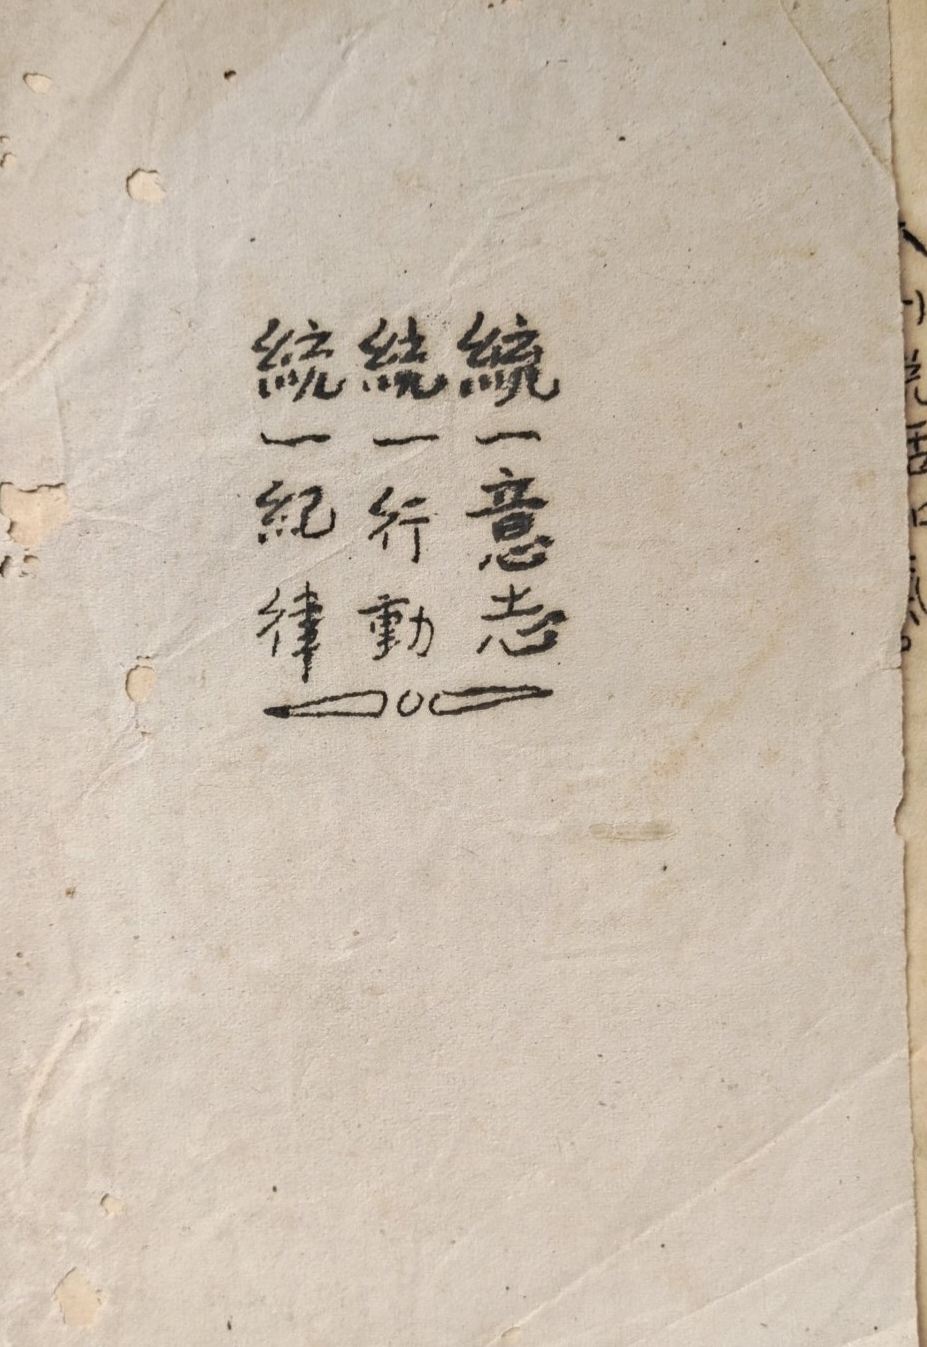 統一意志
統一行動
統一紀律